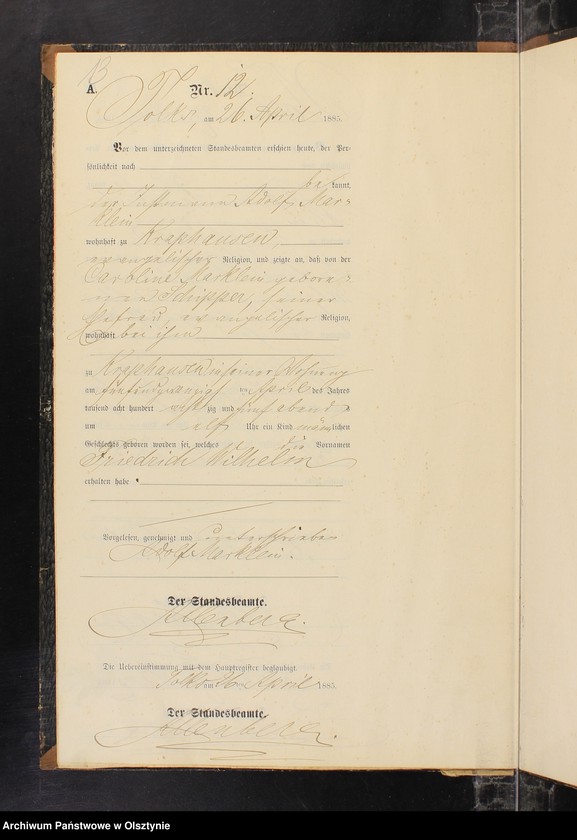 13
A.
Nr. 12.
Tolks, am 26. April 1885.
Vor dem unterzeichneten Standesbeamten erschien heute, der Per-
sönlichkeit nach
be kannt,
der Adolf Mar-
klein
wohnhaft zu Kraphausen,
evangelischer Religion, und zeigte an, daß von der
Caroline Marklein gebore-
nen Schipper, seiner
Ehefrau, evangelischer Religion,
wohnhaft bei ihm
zu Kraphausen in seiner Wohnung
am April des Jahres
tausend acht hundert achtzig und fünf abends
um elf Uhr ein Kind männlichen
Geschlechts geboren worden sei, welches die Vornamen
Friedrich Wilhelm
erhalten habe.
Vorgelesen, genehmigt und unterschrieben
Adolf Marklein.
Der Standesbeamte.
Die Uebereinstimmung mit dem Hauptregister beglaubigt.
Tolks am 26. April 1885
Der Standesbeamte.
Archiwum Państwowe w Olsztynie